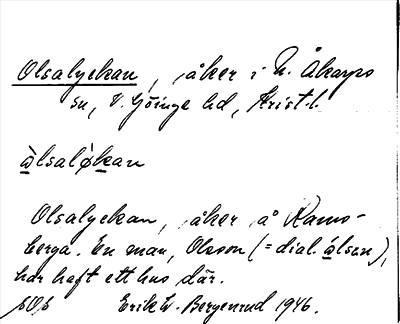 Olsalyckan, åker i N. Åkarps
sn, V. Göinge hd, Krist. l.
àlsalø̀kan
Olsalyckan, åker å Rams-
berga. En man, Olsson (= dial. álsen),
har haft ett hus där.
Erik W. Bergenrud 1946.